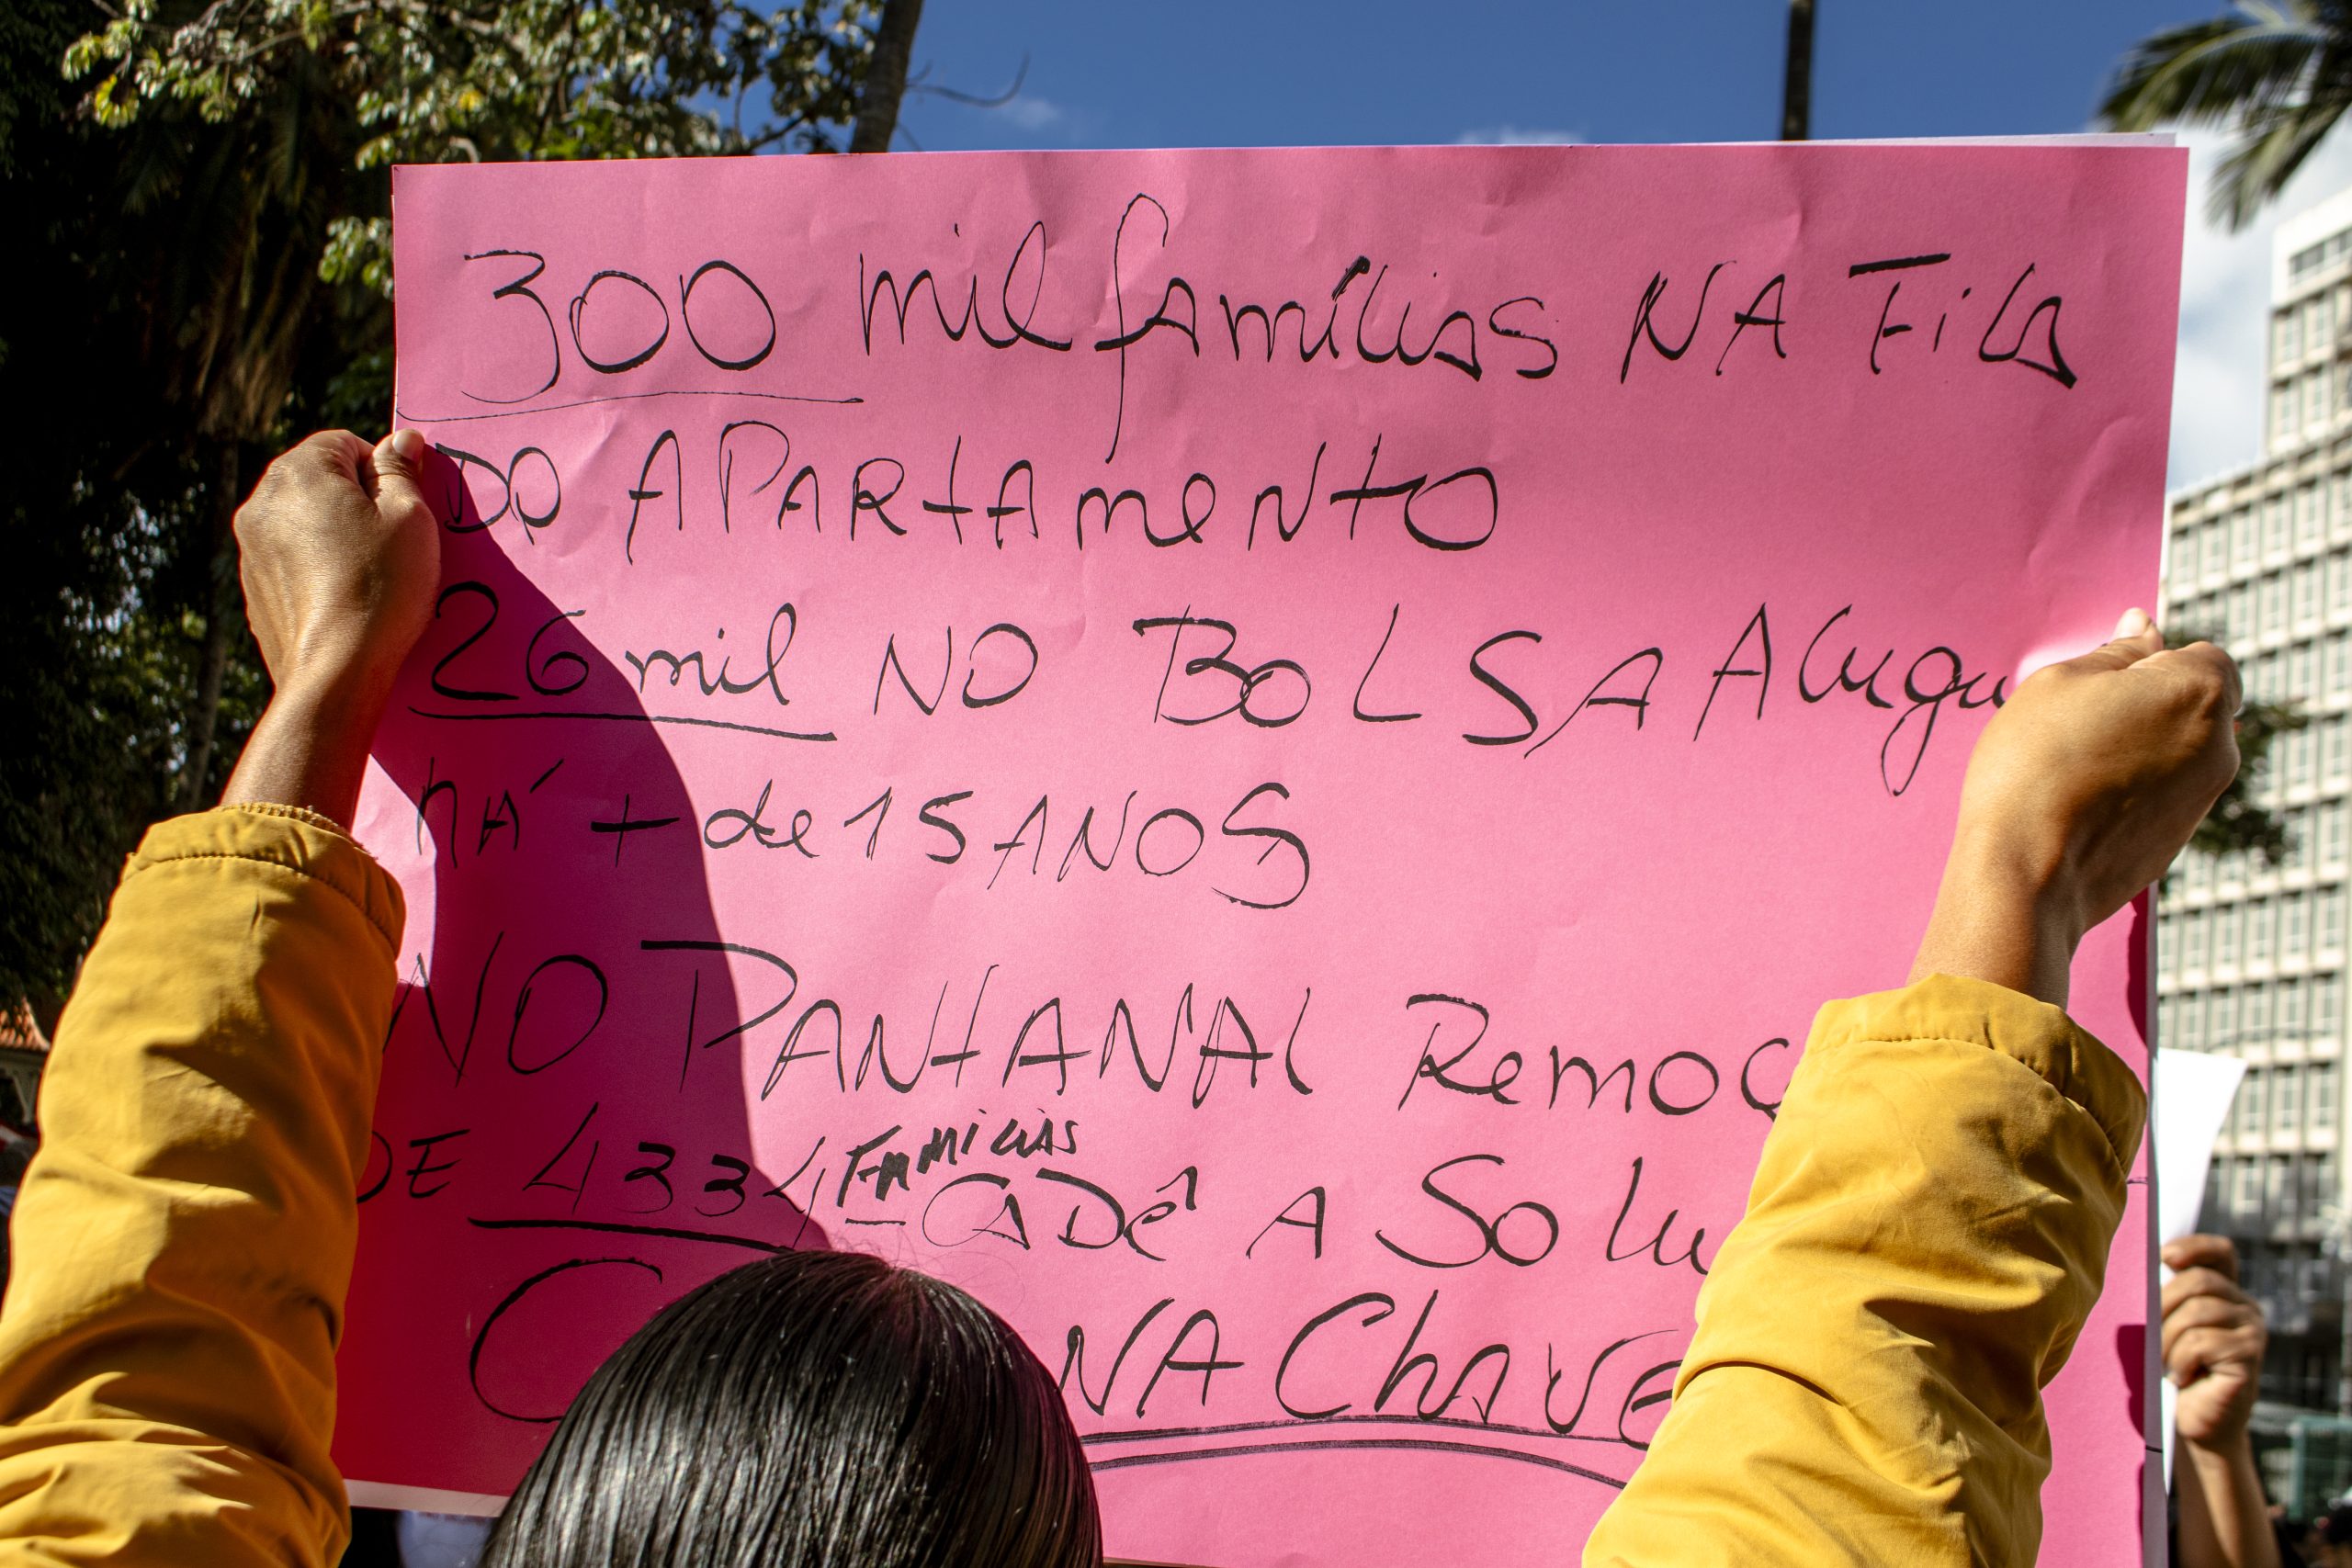 300 mil famílias NA Fila
DO APARtAmeNtO
26 mil NO BOLSA Alugu
há + de 15 ANOS
NO PANtANAl Remoç
DE 4334 FAMILIAS CADê A Solu
C NA ChAVE